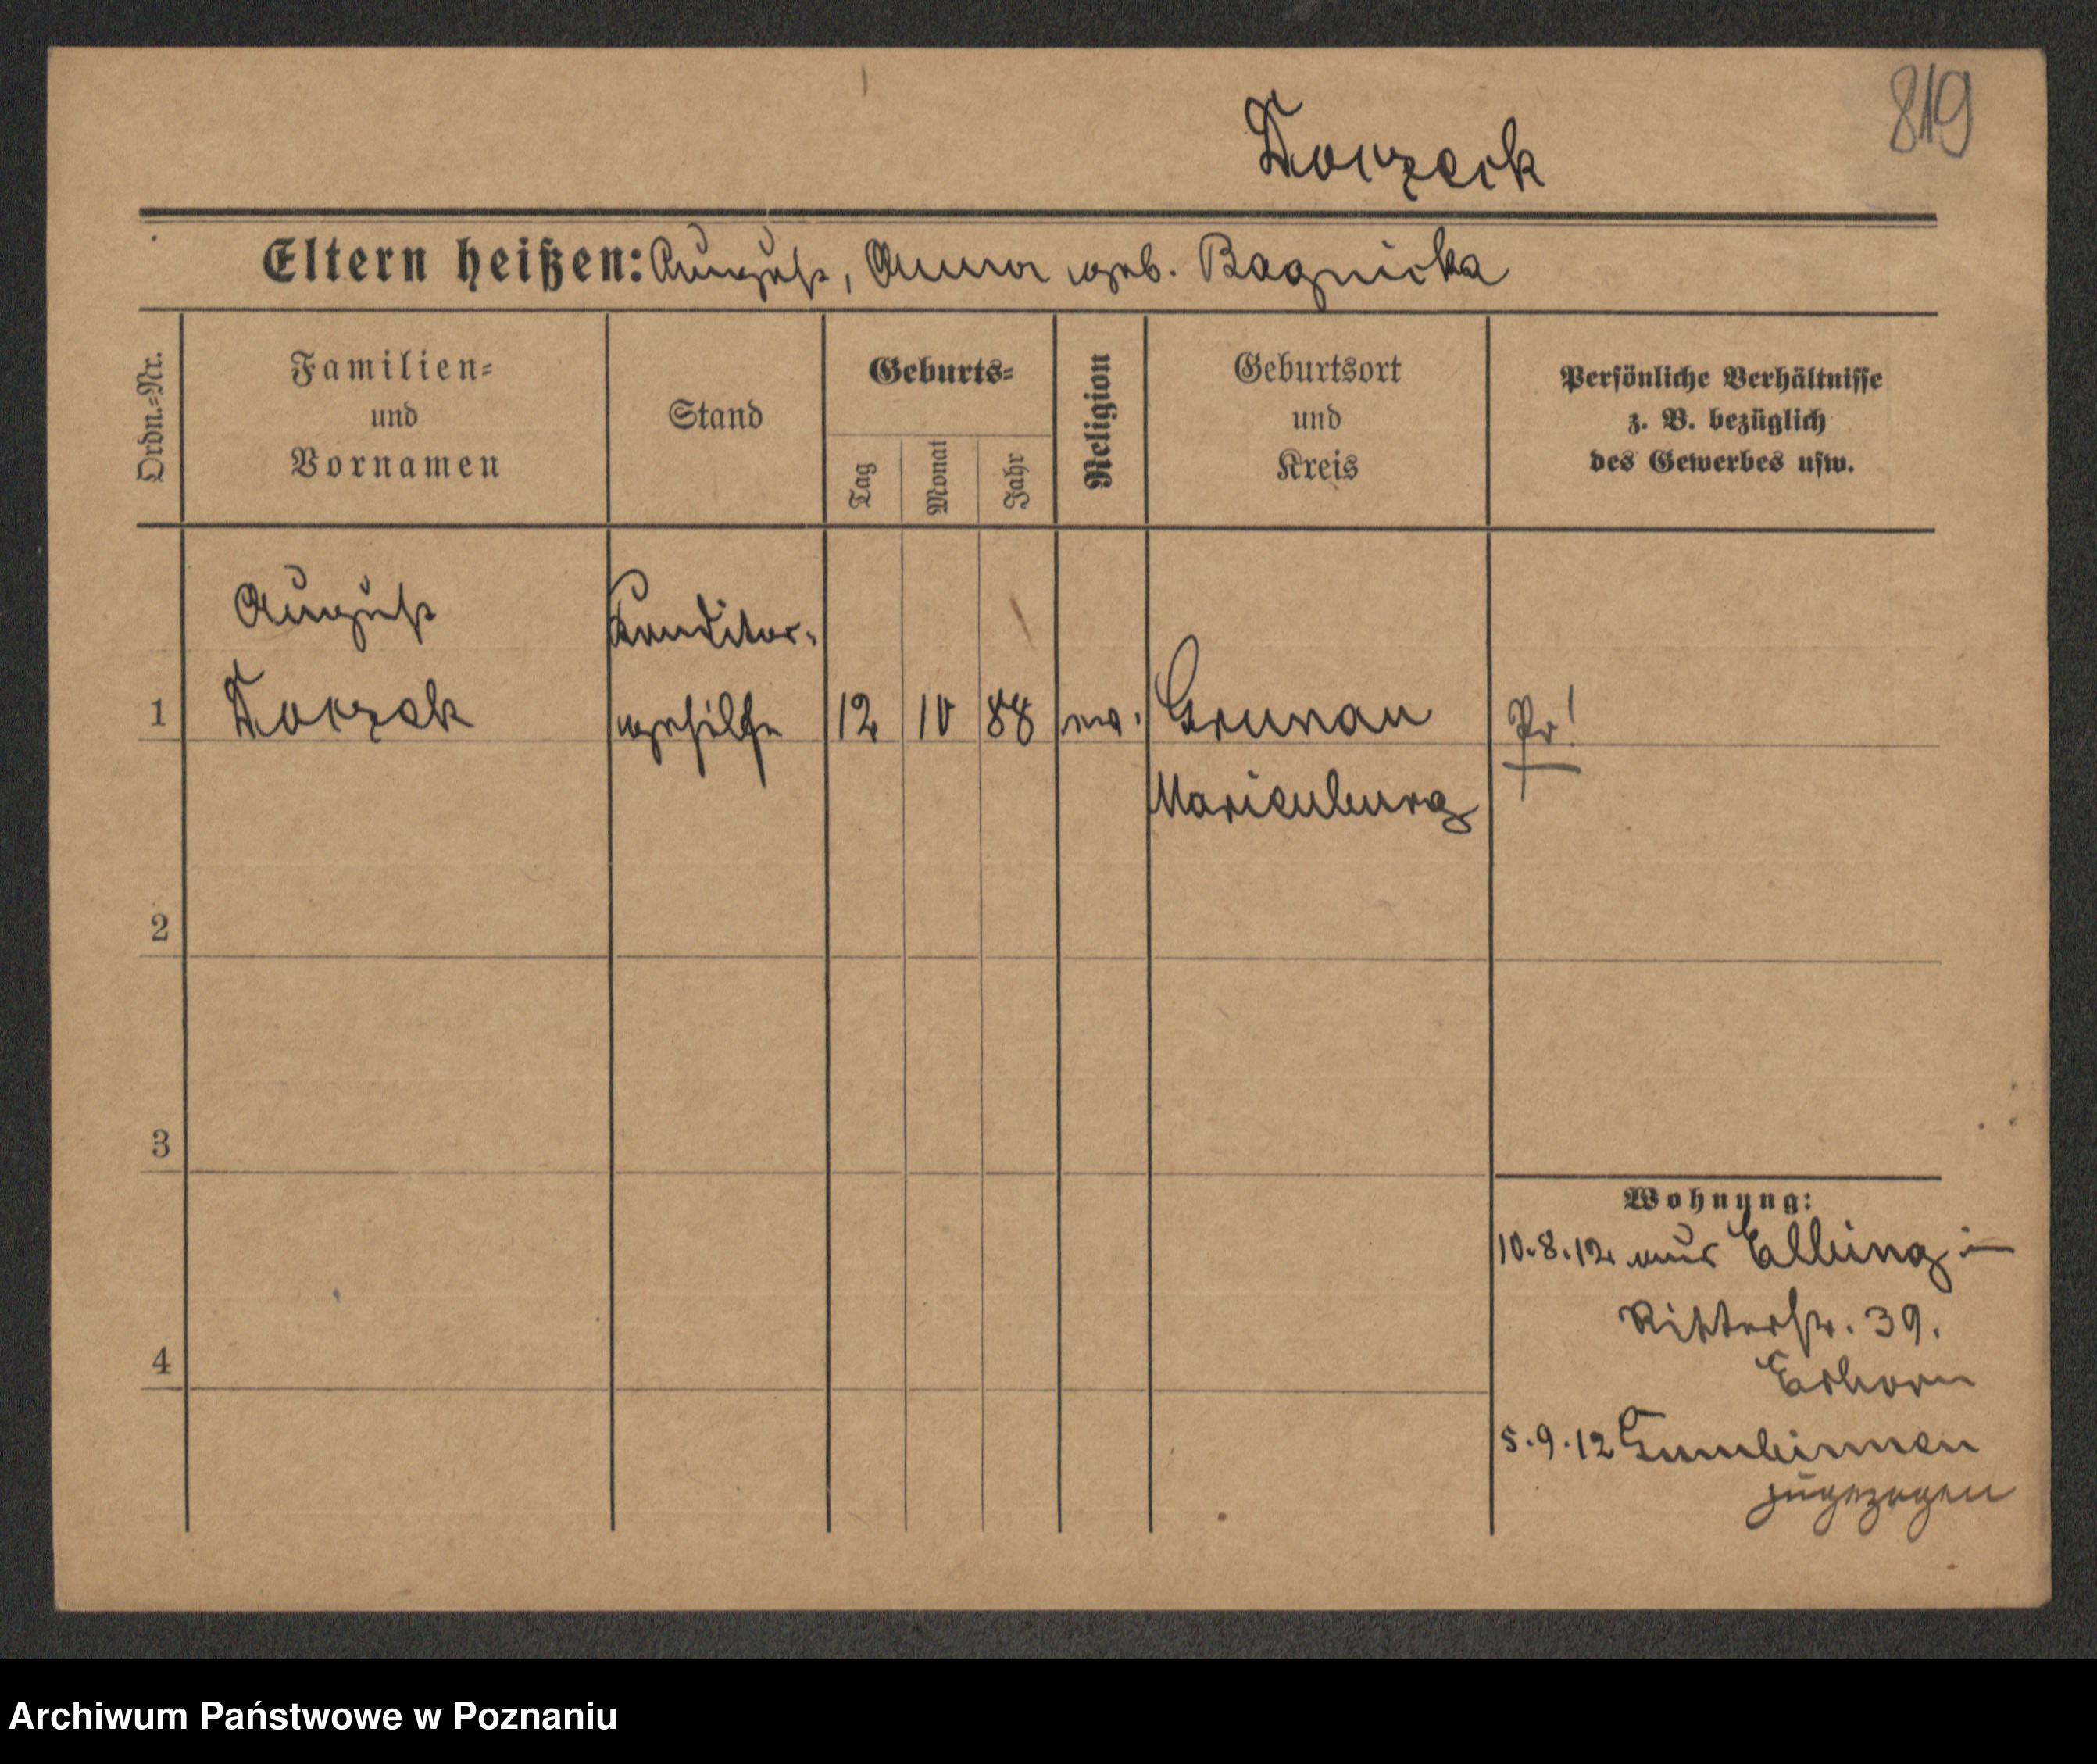 819
Dorzeck
Eltern heißen: August, Anna geb. Bagnicka
Ordn.=Nr.
Familien=
und
Vornamen
Stand
Geburts=
Tag
Monat
Jahr
Religion
Geburtsort
und
Kreis
Persönliche Verhältnisse
z. B. bezüglich
des Gewerbes usw.
August
Konditor-
1
gehilfe
12
10
88
Grunau
Pr!
Marienburg
2
3
4
Wohnung:
10.8.12 aus Elbing in
Ritterstr. 39.
5.9.12 Gumbinnen
zugezogen
Archiwum Państwowe w Poznaniu